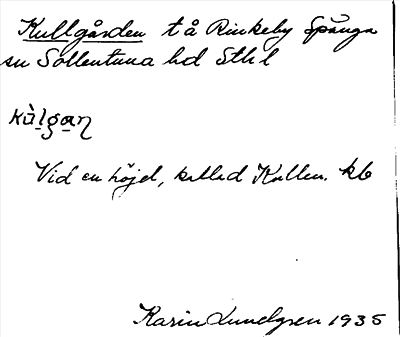 Kullgården t å Rinkeby Spånga
sn Sollentuna hd Sthl
kùlgaɳ
Vid en höjd, kallad Kullen. kb
Karin Lundgren 1935